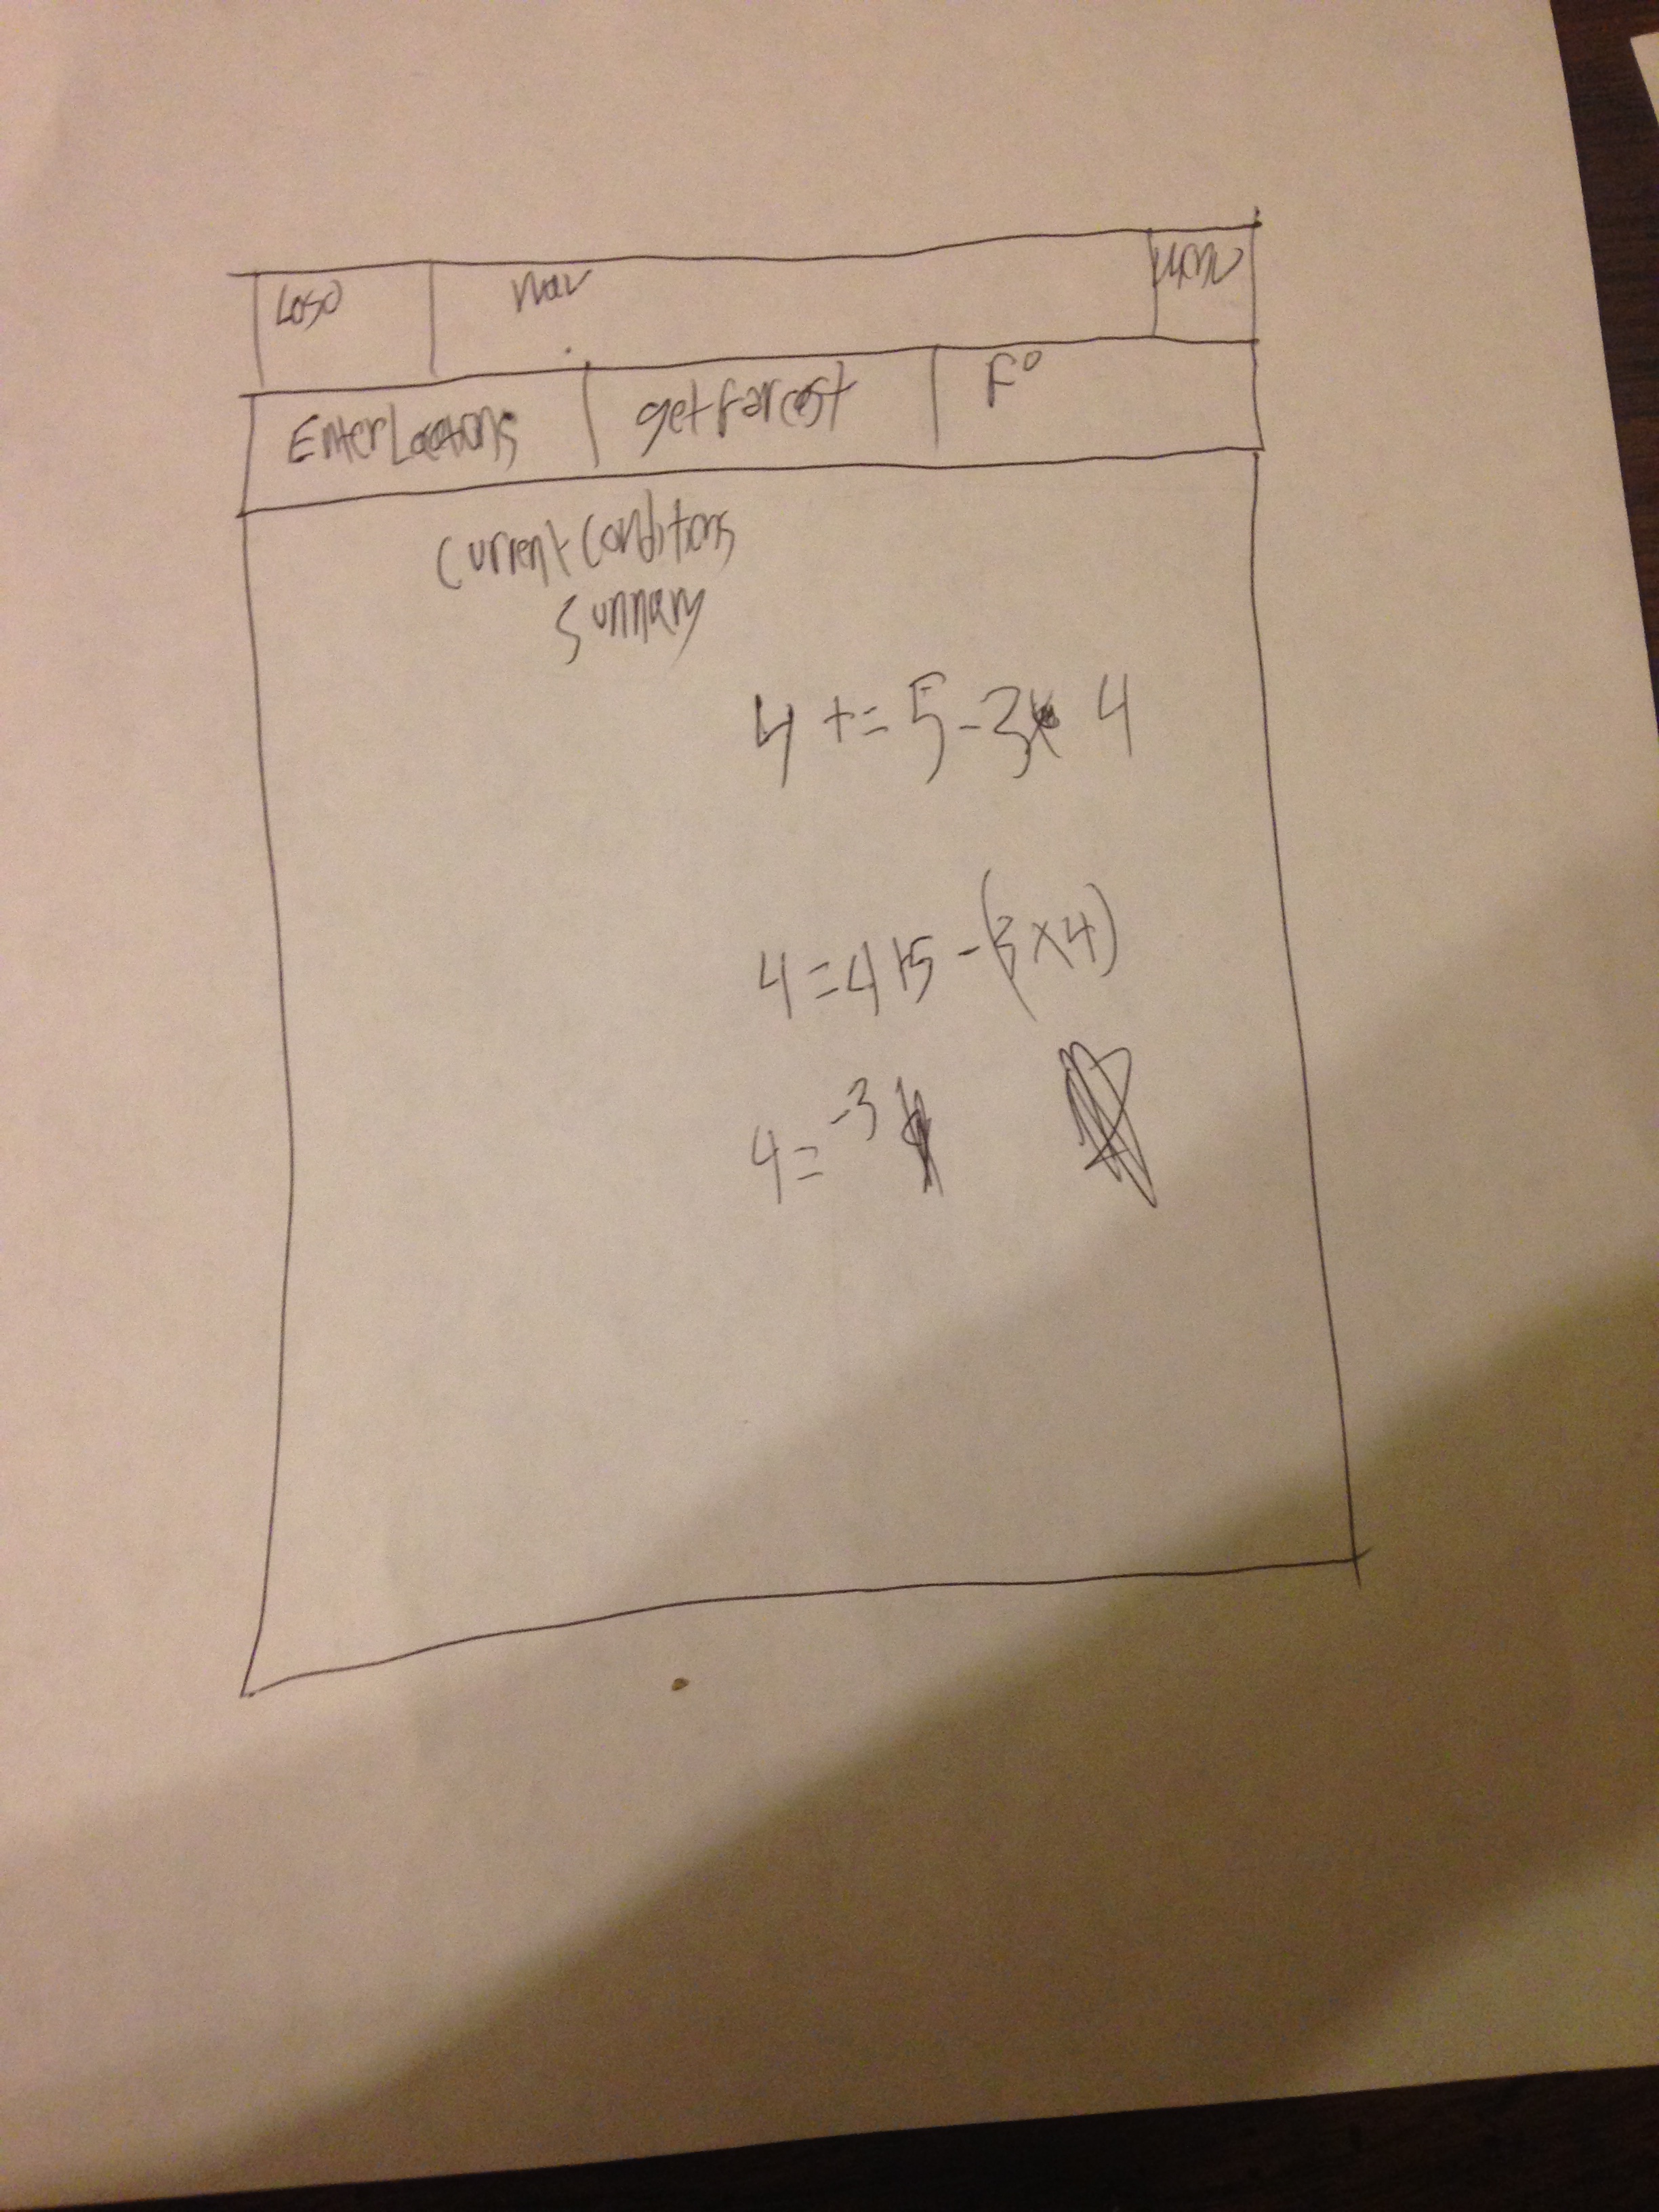 Logo nav
Enter Locations get Farcast F°
Current Conditions
Summary
4 += 5 - 3 x 4
4 = 4 + 5 - (3 x 4)
4 = -3